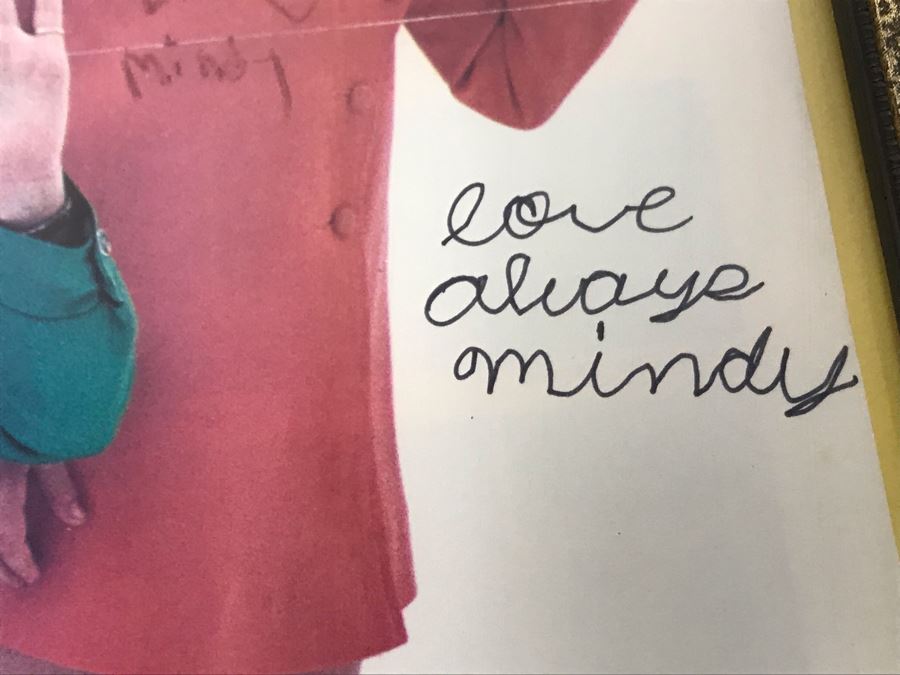 mindy
love
always
mindy